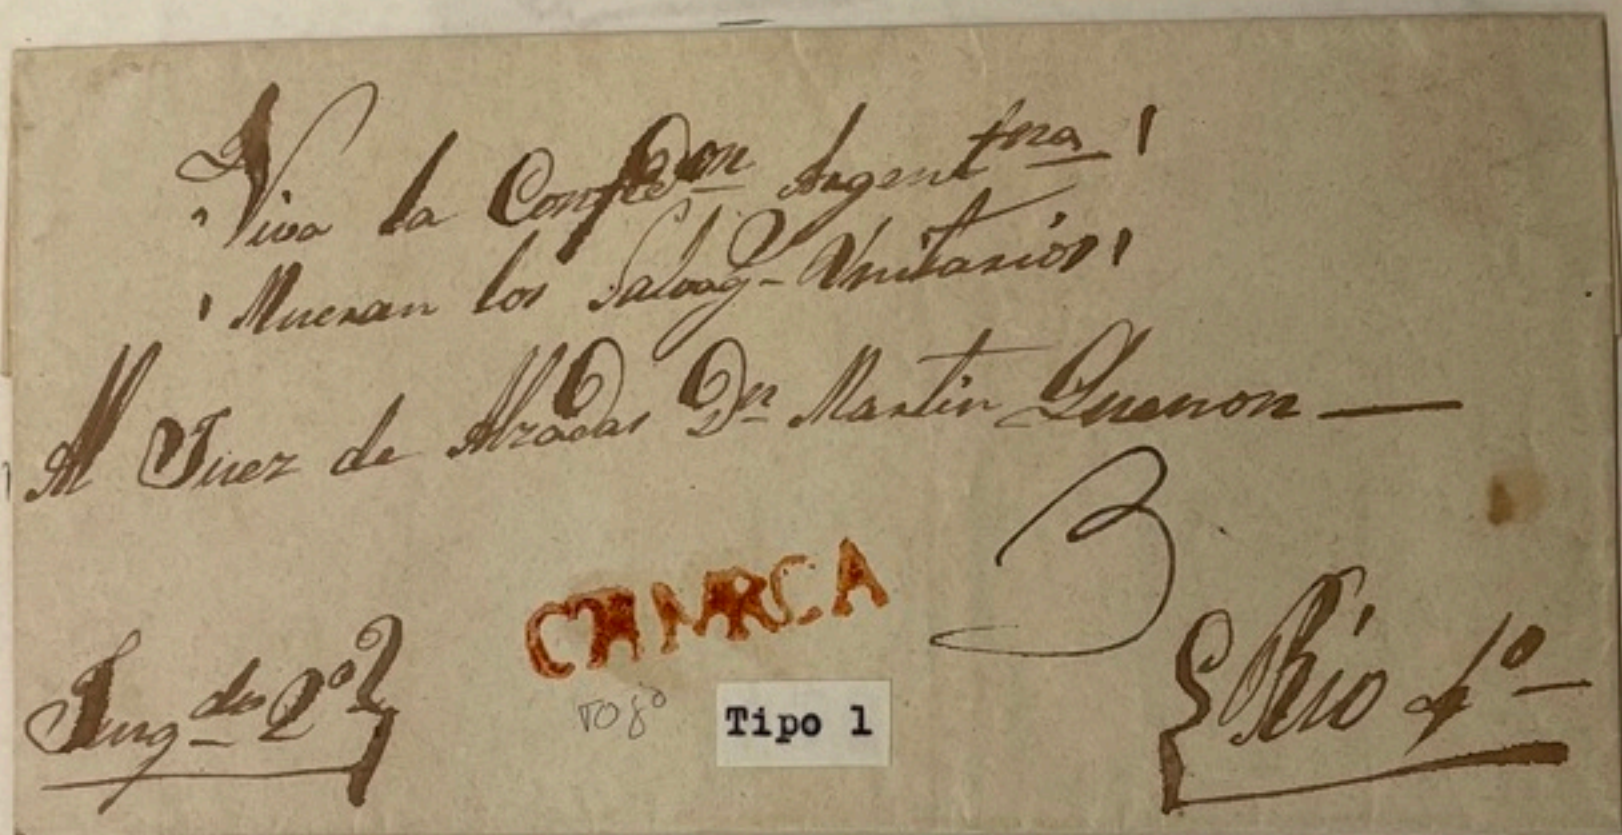 ¡Viva la Confedon Argentna!
¡Mueran los Salvag- Unitarios!
Al Juez de Alzadas Dn Martin Quenon —
3
CAMARCA
Juzgdo 2º
Rio 4º
rojo
Tipo 1